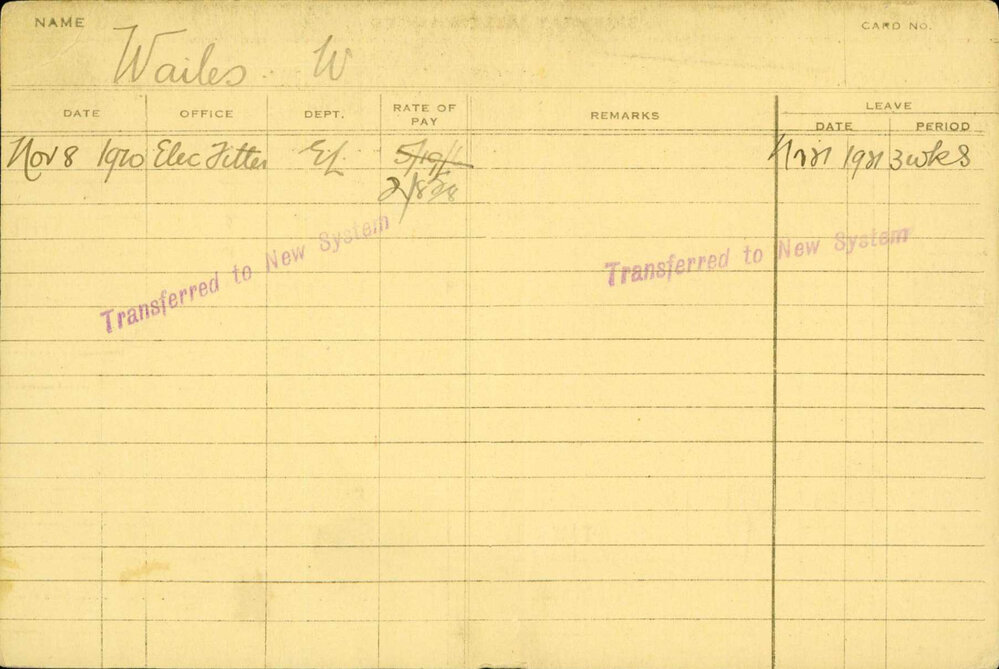 NAME
CARD NO.
Wailes. W
DATE OFFICE DEPT. RATE OF PAY REMARKS LEAVE
DATE PERIOD
Nov 8 1920 Elec Fitter EL 1921 3 wks
Transferred to New System
Transferred to New System